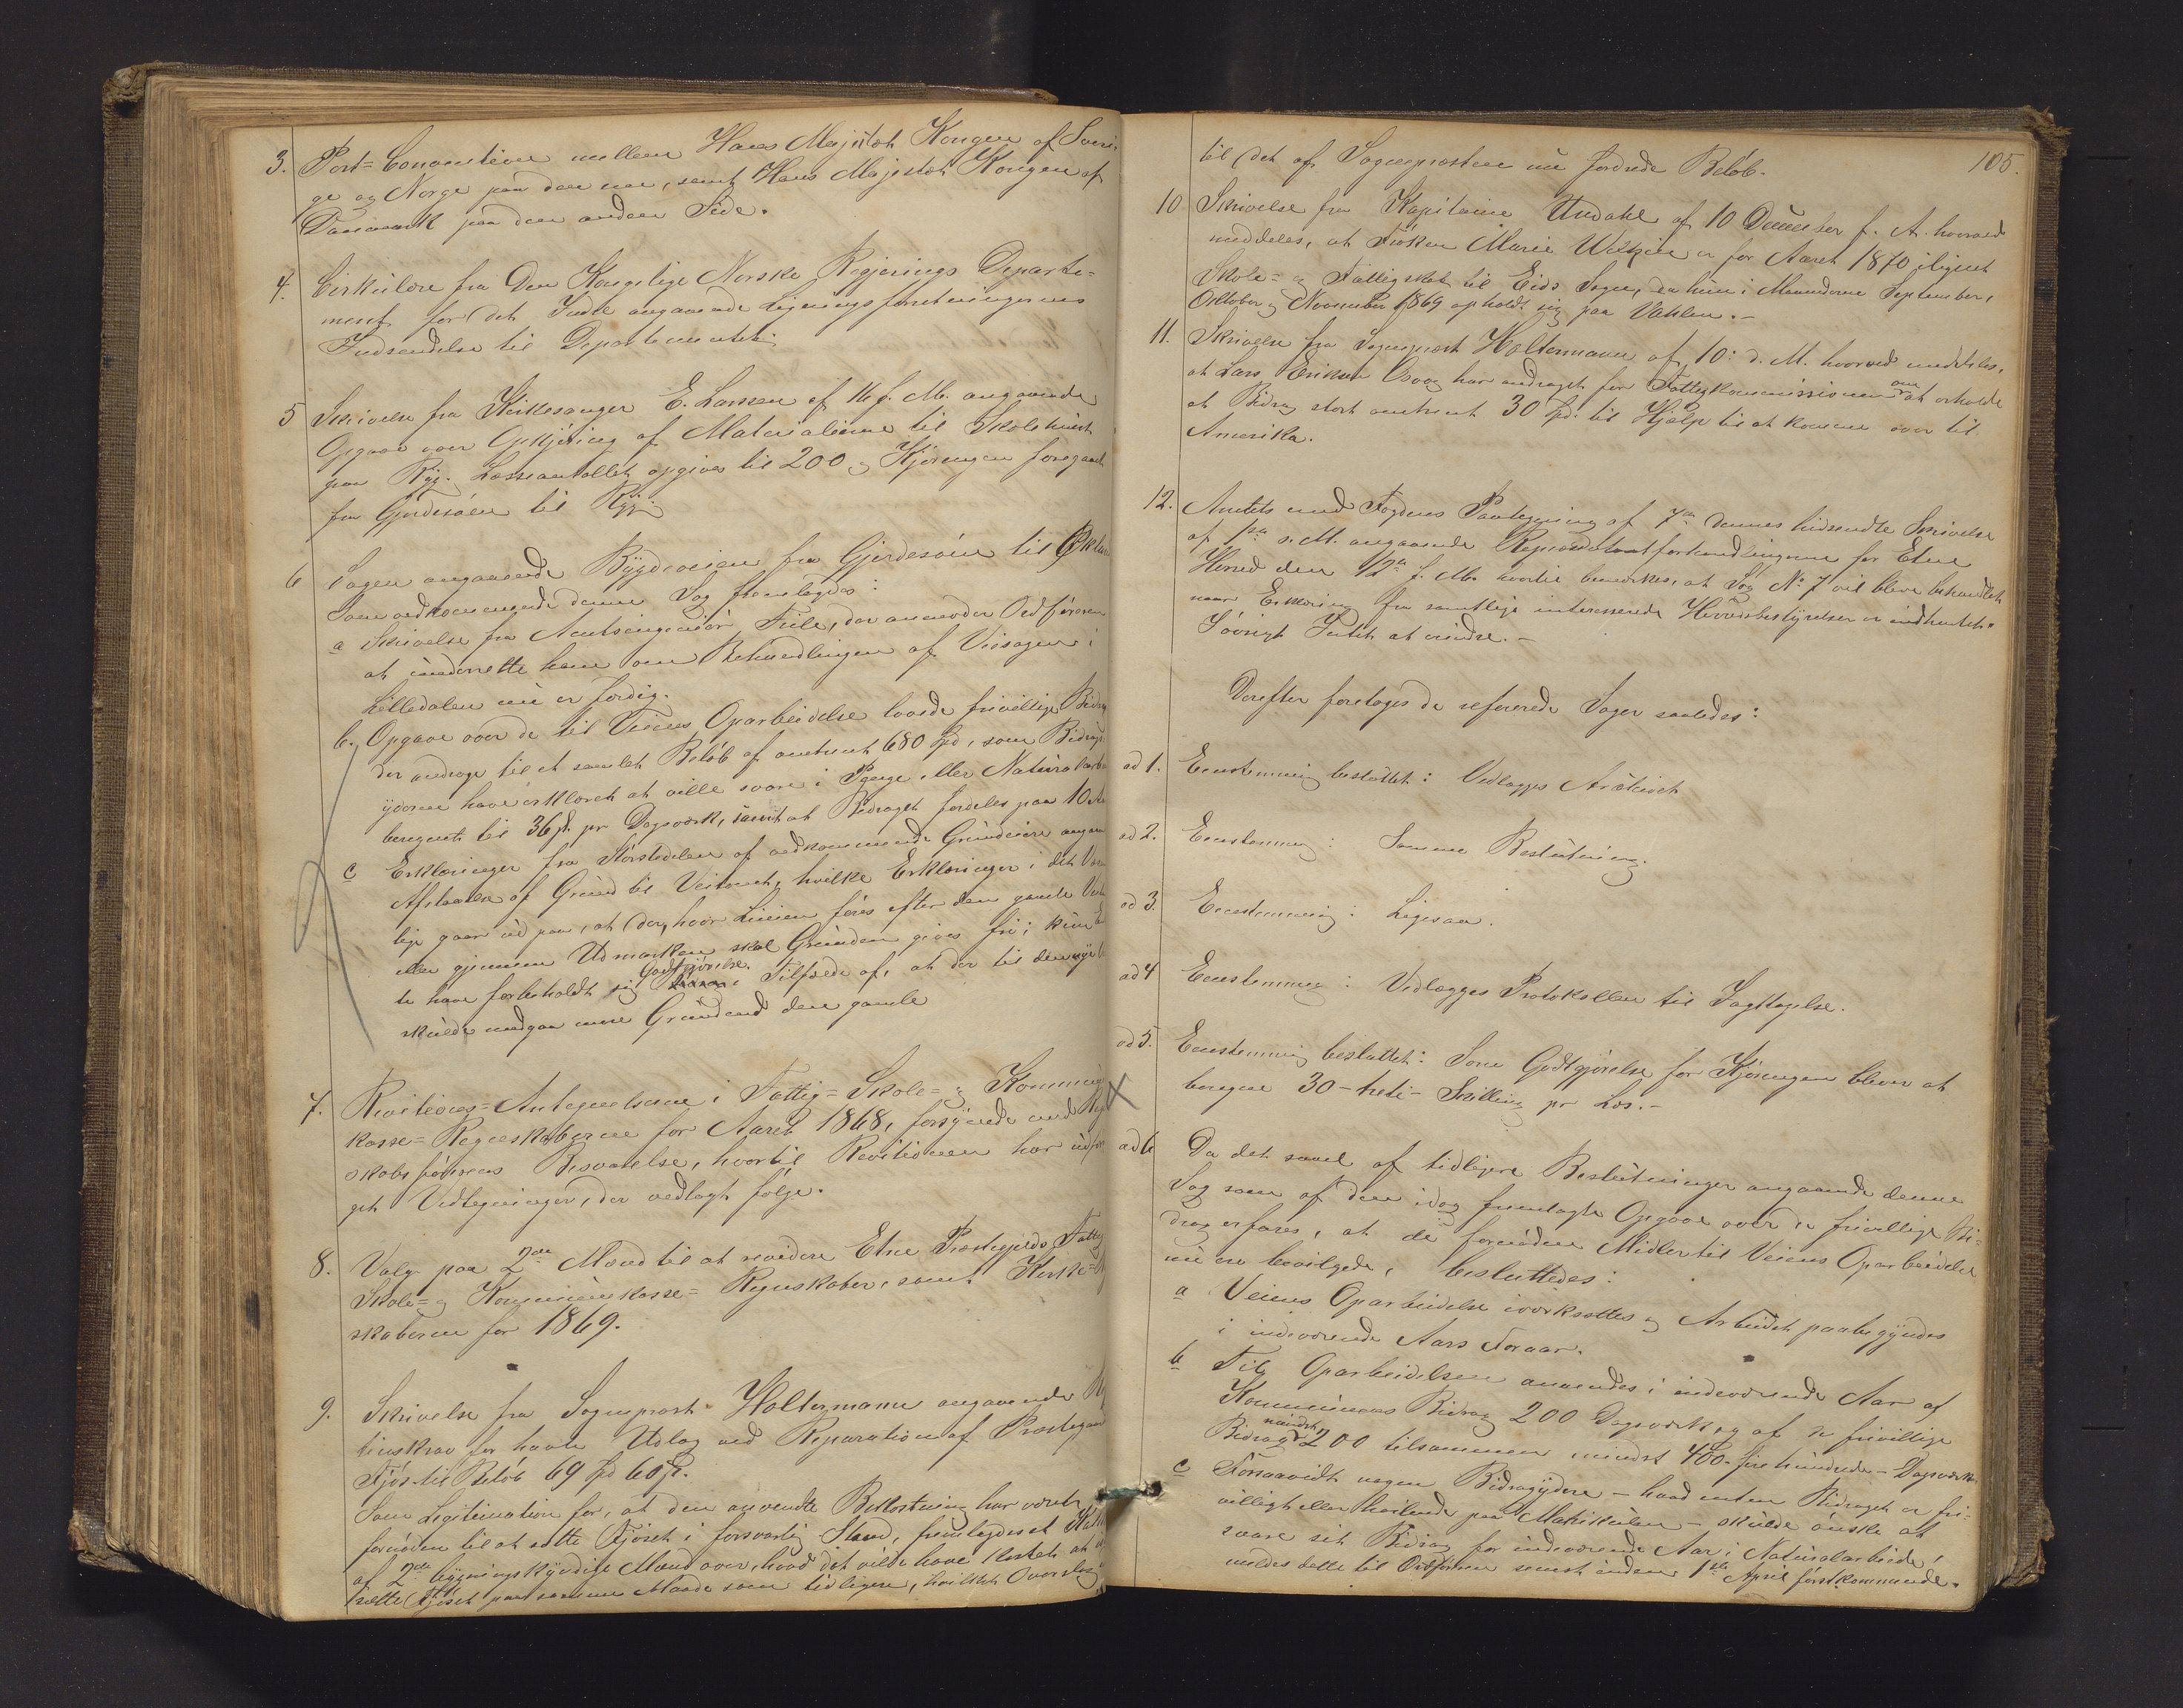 3. Post-Convention mellem Hans Majestæt Kongen af Sveri-
ge og Norge paa den ene, samt Hans Majestæt Kongen af
Danmark paa den anden Side.
4. Cirkulære fra Den Kongelige Norske Regjerings Departe-
ment for det Indre angaaende Ligningsforretningernes
Indsendelse til Departementet
5 Skrivelse fra Kirkesanger E. Larsen af 16 f. M. angaaende
Opgave over Opkjøring af Materialierne til Skolehuset
paa Ryg. Læsseantallet opgives til 200 og Kjøringen foregaaet
fra Gjerdesøen til Ryg
6 Sagen angaaende Bygdeveien fra Gjerdesøen til
Som vedkommende denne Sag fremlagdes:
a Skrivelse fra Amtsingeniør Tiile, der anmoder Ordføreren
at underrette ham om Behandlingen af Veisagen i
Litledalen nu er færdig.
b. Opgave over de til Veiens Oparbeidelse lovede frivillige Bidrag
der andrage til et samlet Beløb af omtrent 680 Spd, som Bidrags-
yderne have erklæret at ville svare i Penge eller Naturalarbei
beregnet til 36 ß pr Dagsværk, samt at Bidraget fordeles paa 10 Aar
c Erklæringer fra Størstedelen af vedkommende Grundeiere angaa
Afstaaelse af Grund til Veitomt, hvilke Erklæringer i det Væsent
lige gaar ud paa, at der, hvor Linien føres efter den gamle Vei
eller gjennem Udmarken skal Grunden gives fri; kun E
te have forbeholdt sig Godtgjørelse. Tilfælde af, at der til den nye
skulde medgaa mere Grund end den gamle
7. Revisions-Antegnelserne i Fattig- Skole- og Kommune
kasse-Regnskaberne for Aaret 1868, forsynede med Regn
skabsførerens Besvarelse, hvortil Revisionen har udfær
get Vedtegninger, der vedlagt følge.
8. Valg paa 2de Mænd til at revidere Etne Præstegjelds Fattig
Skole- og Kommunekasse-Regnskaber, samt Kirke-Regn
skaberne for 1869.
9. Skrivelse fra Sogneprest Holtermann angaaende
tionskrav for havte Udlæg ved Reparation af Præstegaardens
Fjøs til Beløb 69 Spd 60 ß.
Som Legitimation for, at den anvendte Bekostning har været
fornøden til at sætte Fjøset i forsvarlig Stand, fremlagdes et
af 2de bygningskyndige Mænd over, hvad det vilde have kostet at
sætte Fjøset paa samme Maade som tidligere, hvilket Overslag
105.
til det af Sognepresten nu fordrede Beløb.
10 Skrivelse fra Kapitaine Undahl af 10 December f. A. hvorved
meddeles, at Frøken Marie er for Aaret 1870 ilignet
Skole- og Fattigskat til Eids Sogn, da hun i Maanederne September,
Oktober og November 1869 opholdt sig paa Vaklen.-
11. Skrivelse fra Sogneprest Holtermann af 10: d. M. hvorved meddeles,
at Lars Eriksen har andraget for Fattigkommissionen om at erholde
et Bidrag stort omtrent 30 Spd. til Hjælp til at komme over til
Amerika.
12. Amtets med Fogdens Paategning af 7de dennes hidsendte Skrivelse
af 1ste d. M. angaaende Repræsentantforhandlingerne for Etne
Herred den 12te f. M. hvortil bemærkes, at Sag No 7 vil blive behandlet
naar Erklæring fra samtlige interesserede Herredsbestyrelser er indhentet.
Iøvrigt Intet at erindre.-
Derefter foretoges de refererede Sager saaledes:
ad 1. Eenstemmig besluttet: Vedlægges Arkivet
ad 2. Eenstemmig: Samme Beslutning.
ad 3. Eenstemmig: Ligesaa.
ad 4 Eenstemmig: Vedlægges Protokollen til Iagttagelse.
ad 5. Eenstemmig besluttet: Som Godtgjørelse for Kjøringen bliver at
beregne 30 - treti - Skilling pr Læs.-
ad 6 Da det saavel af tidligere Beslutninger angaaende denne
Sag som af den idag fremlagte Opgave over de frivillige Bi-
drag erfares, at de fornødne Midler til Veiens Oparbeidelse
nu ere bevilgede, besluttedes:
a Veiens Oparbeidelse iværksættes og Arbeidet paabegyndes
i indeværende Aars Foraar.
b Til Oparbeidelsen anvendes i indeværende Aar af
Kommunens Bidrag 200 Dagsværk, og af de frivillige
Bidrag mindst 200 tilsammen mindst 400 - fire hundrede - Dagsværk.
c Forsaavidt nogen Bidragsydere - hvad enten Bidraget er fri-
villigt eller hvilende paa Matrikulen - skulde ønske at
svare sit Bidrag for indeværende Aar i Naturalarbeide,
meldes dette til Ordføreren senest inden 1ste April førstkommende.